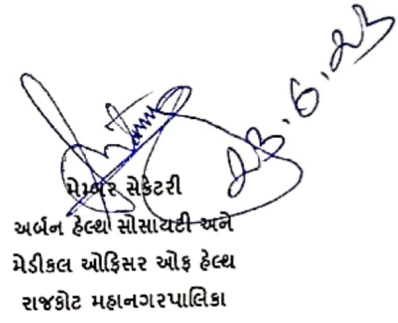 23.6.23
મેમ્બર સેક્રેટરી
અર્બન હેલ્થ સોસાયટી અને
મેડીકલ ઓફિસર ઓફ હેલ્થ
રાજકોટ મહાનગરપાલિકા